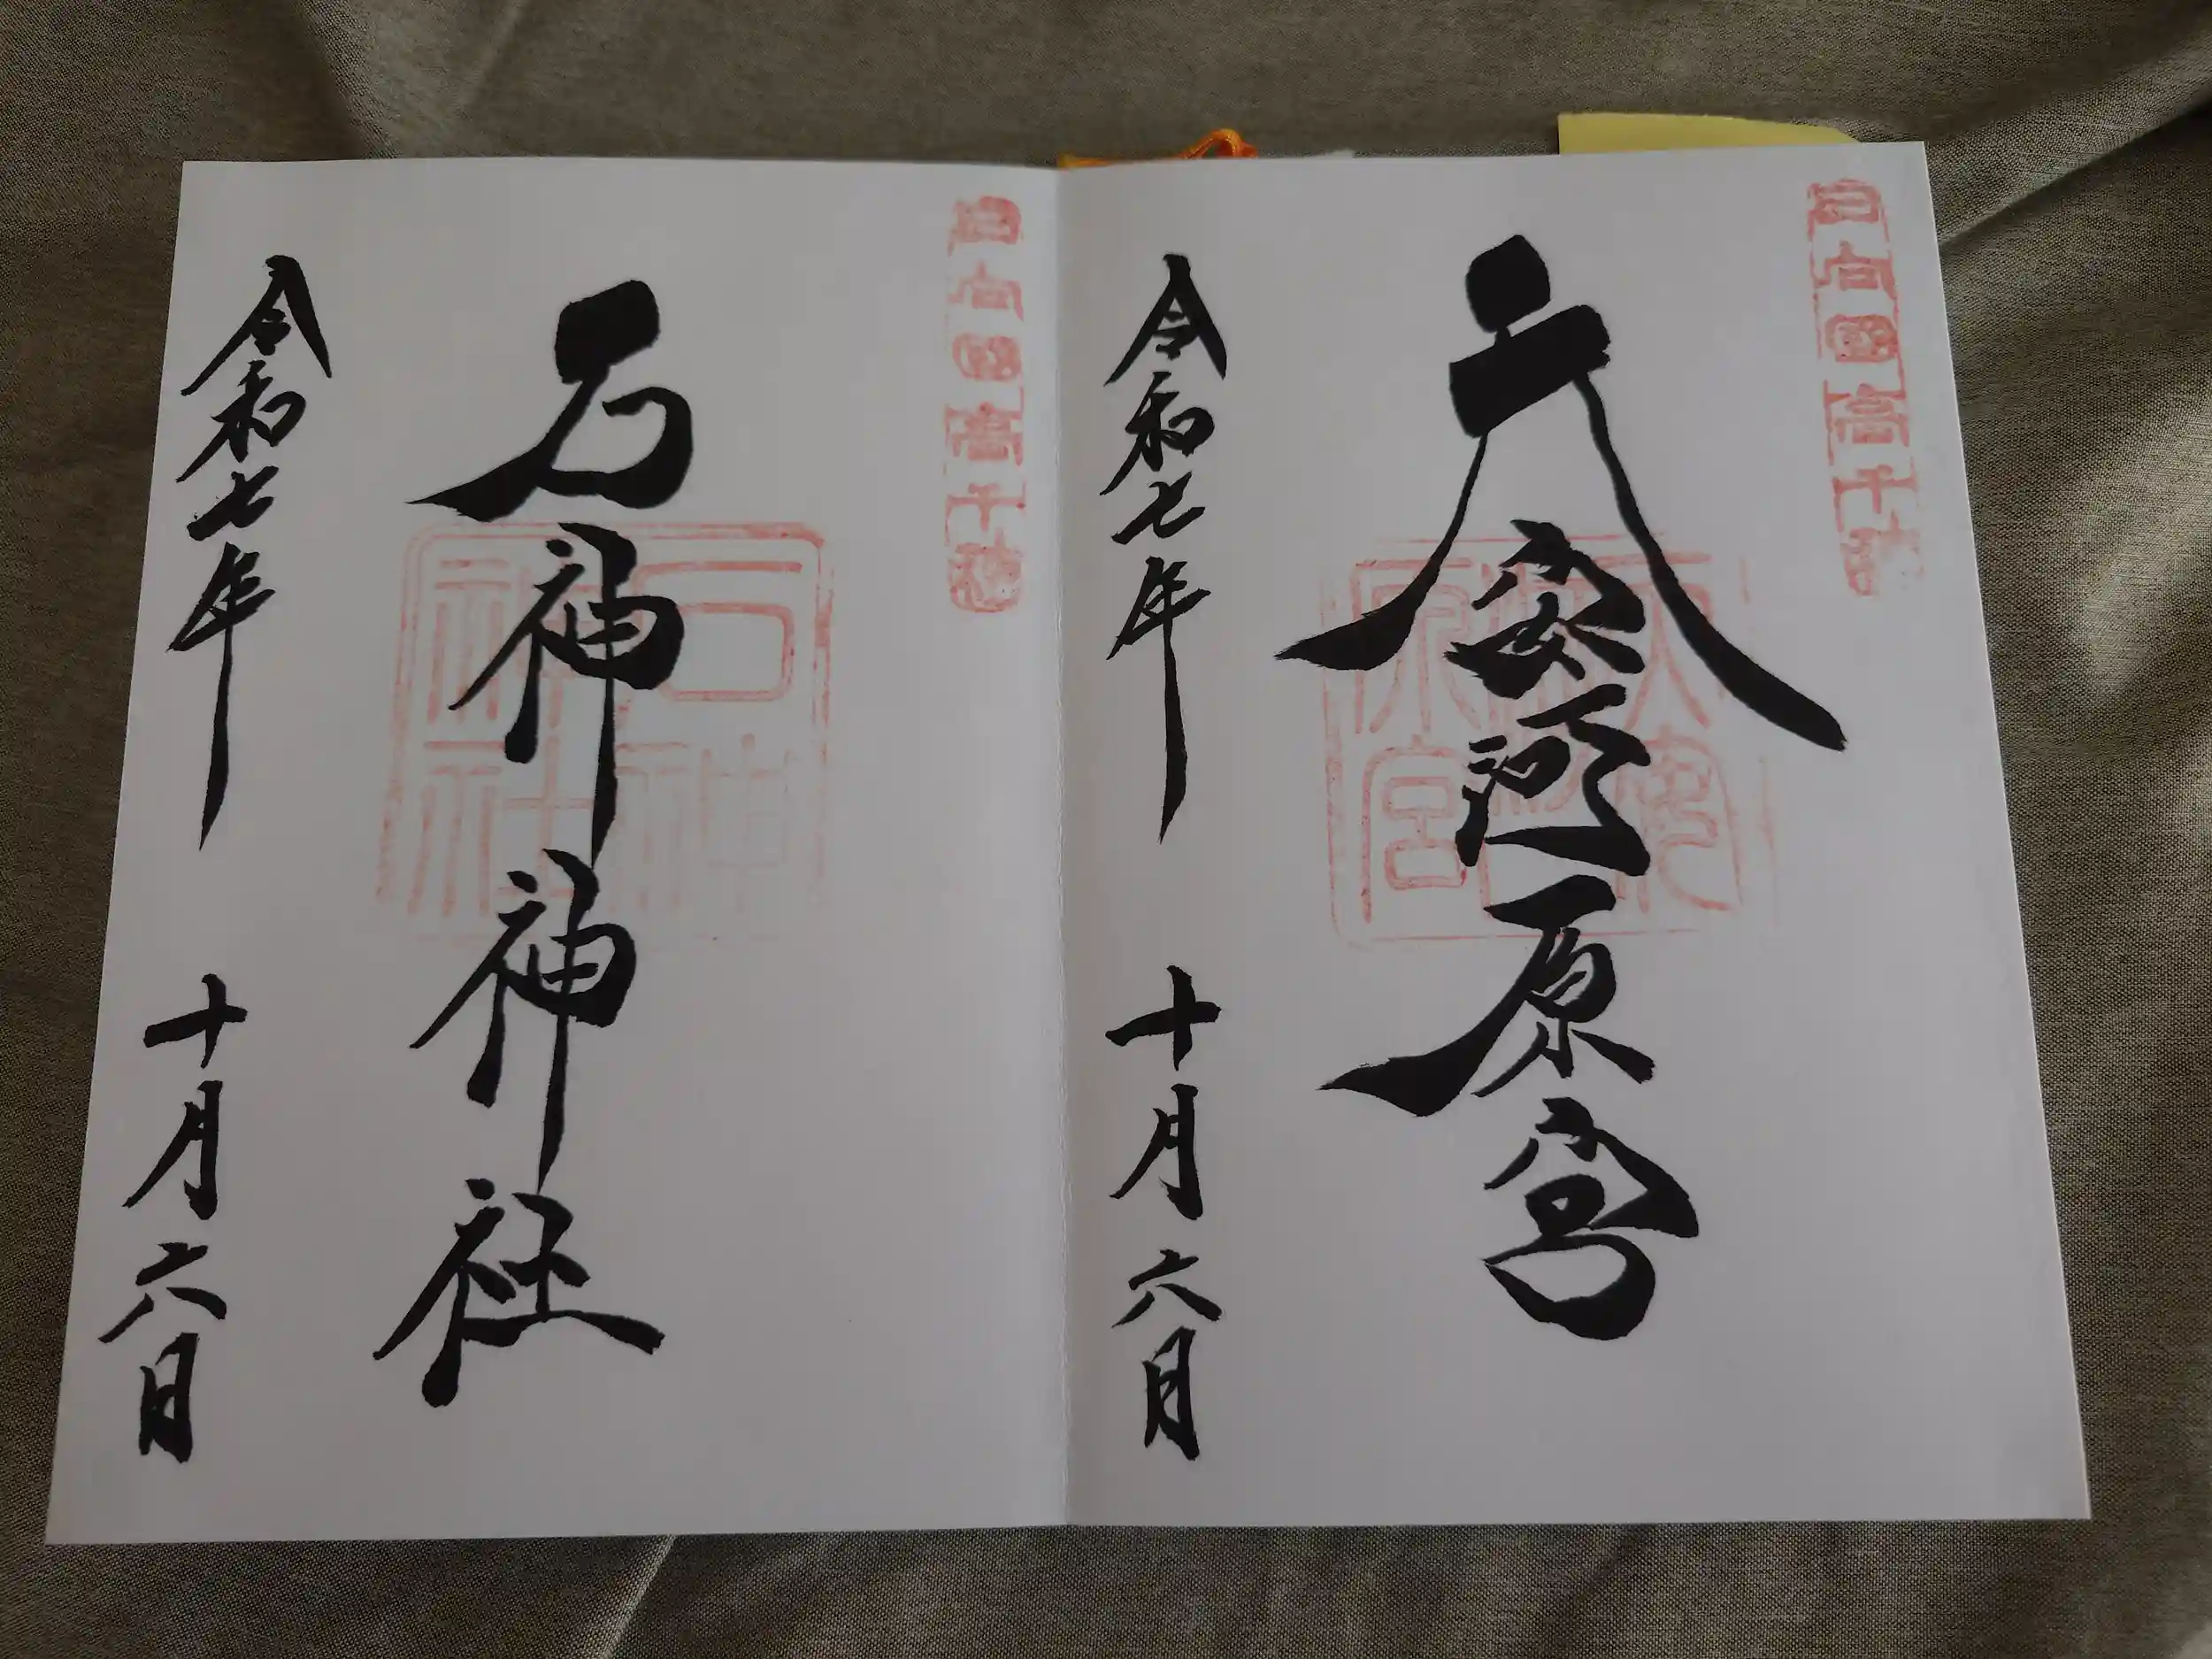 日向國高千穂
天安河原宮
天安河原宮
令和七年 十月六日
日向國高千穂
石神神社
石神神社
令和七年 十月六日